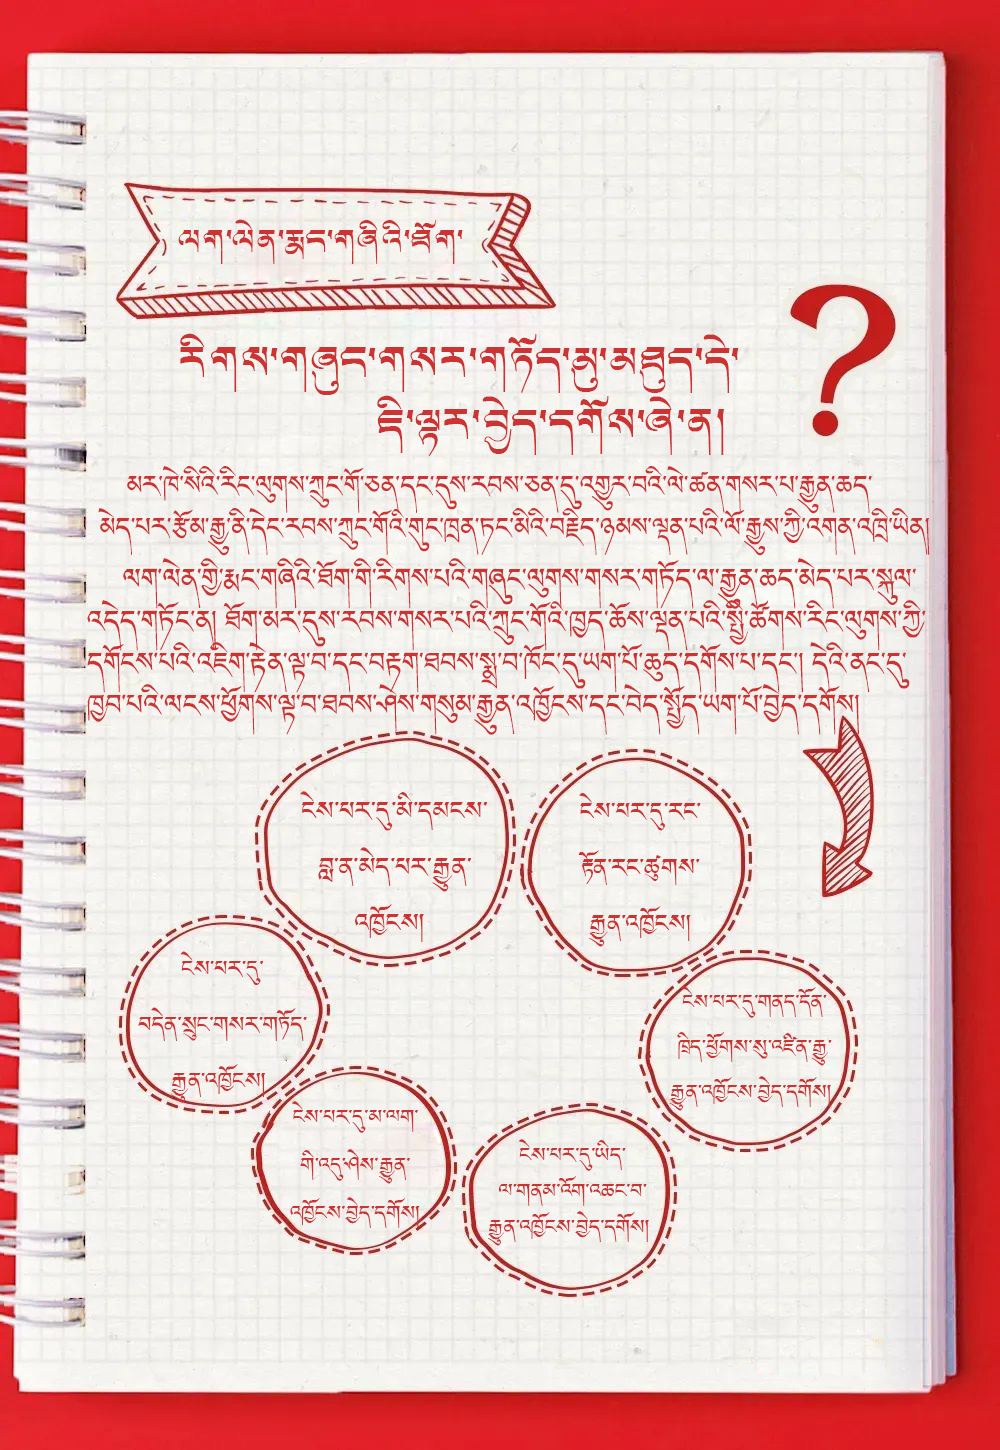 ལག་ལེན་རྨང་གཞིའི་ཐོག་
རིགས་གཞུང་གསར་གཏོད་མུ་མཐུད་དེ་
ཇི་ལྟར་བྱེད་དགོས་ཞེ་ན།
མར་ཁེ་སིའི་རིང་ལུགས་ཀྲུང་གོ་ཅན་དང་དུས་རབས་ཅན་དུ་འགྱུར་བའི་ལེ་ཚན་གསར་པ་རྒྱུན་ཆད་
མེད་པར་རྩོམ་རྒྱུ་ནི་དེང་རབས་ཀྲུང་གོའི་གུང་ཁྲན་ཏང་མིའི་བརྗིད་ཉམས་ལྡན་པའི་ལོ་རྒྱུས་ཀྱི་འགན་འཁྲི་ཡིན།
ལག་ལེན་གྱི་རྨང་གཞིའི་ཐོག་གི་རིགས་པའི་གཞུང་ལུགས་གསར་གཏོད་ལ་རྒྱུན་ཆད་མེད་པར་སྐུལ་
འདེད་གཏོང་ན། ཐོག་མར་དུས་རབས་གསར་པའི་ཀྲུང་གོའི་ཁྱད་ཆོས་ལྡན་པའི་སྤྱི་ཚོགས་རིང་ལུགས་ཀྱི་
དགོངས་པའི་འཇིག་རྟེན་ལྟ་བ་དང་བརྟག་ཐབས་སྨྲ་བ་ཁོང་དུ་ཡག་པོ་ཆུད་དགོས་པ་དང་། དེའི་ནང་དུ་
ཁྱབ་པའི་ལངས་ཕྱོགས་ལྟ་བ་ཐབས་ཤེས་གསུམ་རྒྱུན་འཁྱོངས་དང་བེད་སྤྱོད་ཡག་པོ་བྱེད་དགོས།
ངེས་པར་དུ་མི་དམངས་
བླ་ན་མེད་པར་རྒྱུན་
འཁྱོངས།
ངེས་པར་དུ་རང་
རྟོན་རང་ཚུགས་
རྒྱུན་འཁྱོངས།
ངེས་པར་དུ་
བདེན་སྲུང་གསར་གཏོད་
རྒྱུན་འཁྱོངས།
ངེས་པར་དུ་གནད་དོན་
ཁྲིད་ཕྱོགས་སུ་འཛིན་རྒྱུ་
རྒྱུན་འཁྱོངས་བྱེད་དགོས།
ངེས་པར་དུ་མ་ལག་
གི་འདུ་ཤེས་རྒྱུན་
འཁྱོངས་བྱེད་དགོས།
ངེས་པར་དུ་ཡིད་
ལ་གནམ་འོག་འཆང་བ་
རྒྱུན་འཁྱོངས་བྱེད་དགོས།